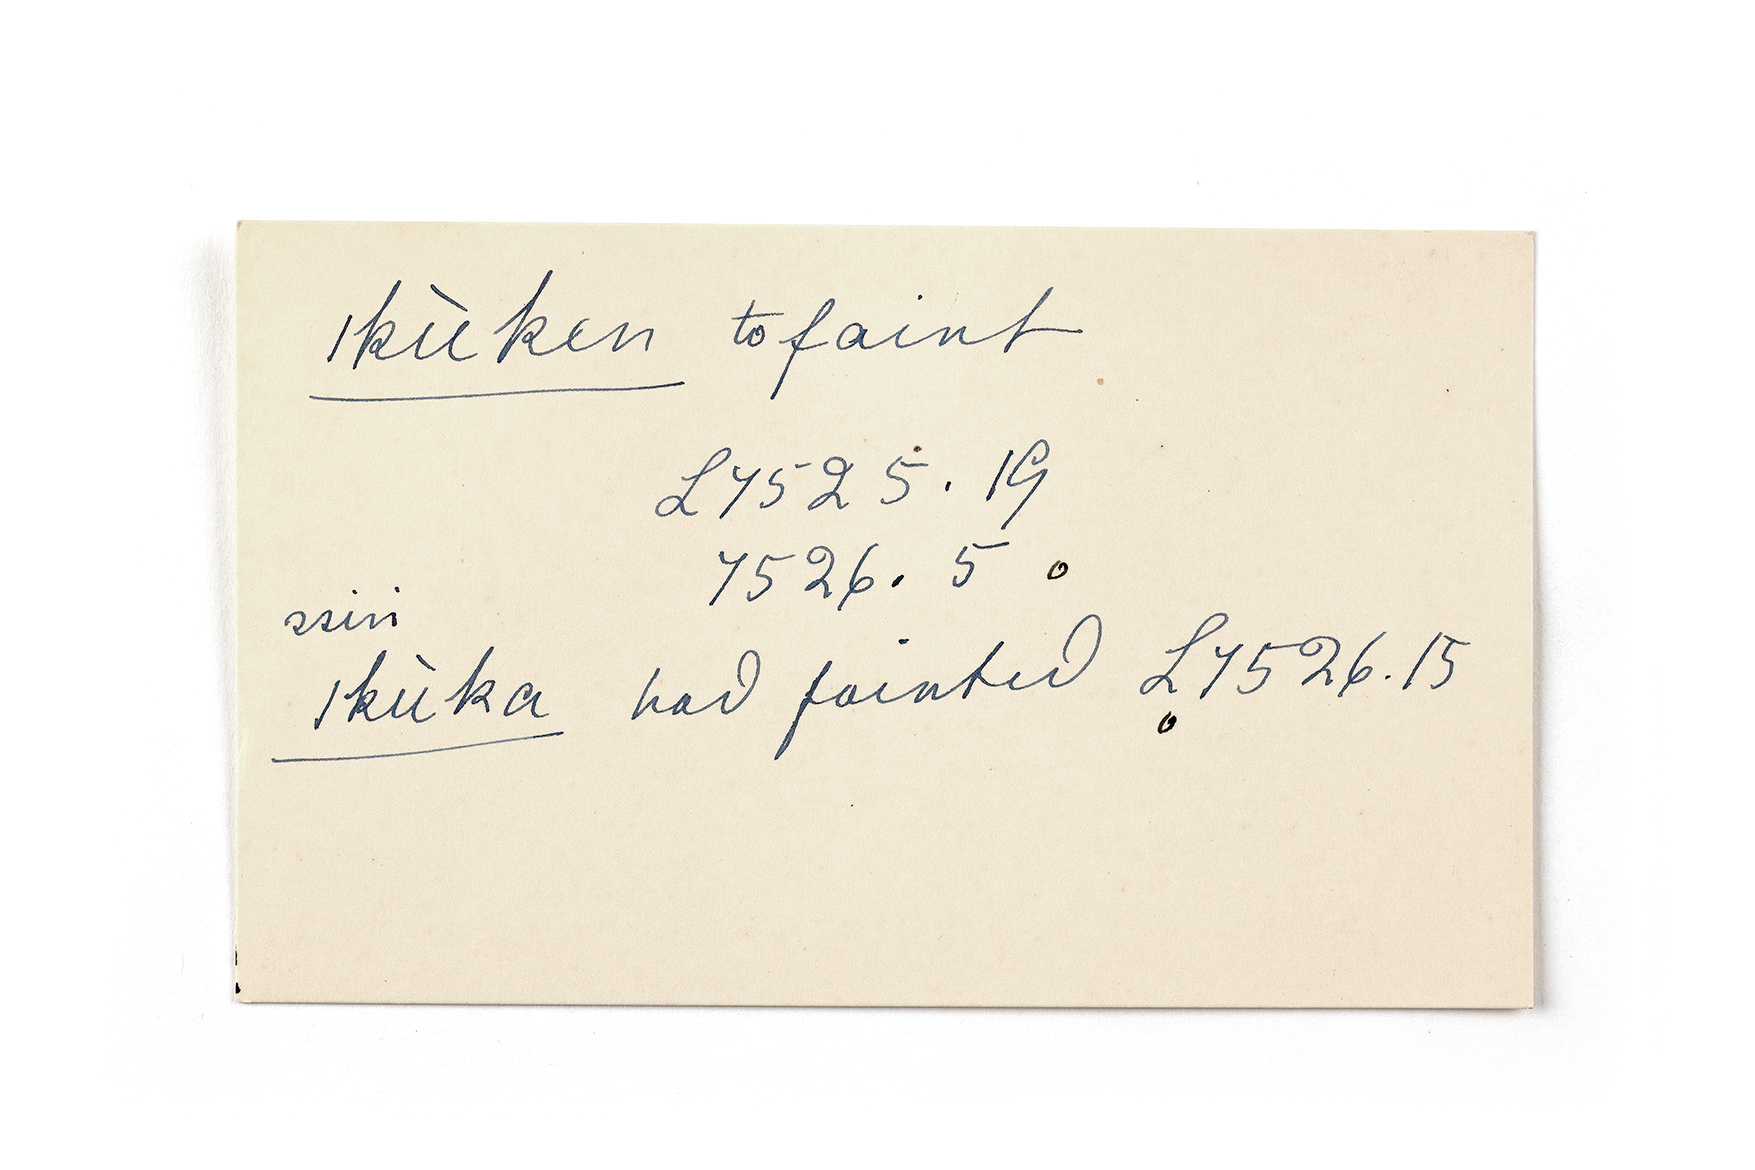 ıkùken to faint
L7525.19
7526. 5 o
ssin
ıkùka had fainted L7526.15
o